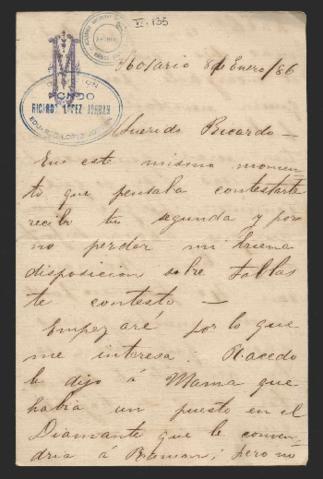 VI-135
M
FONDO
RICARDO LOPEZ JORDAN
Rosario 8 de Enero/86
Querido Ricardo —
En este mismo momen-
to que pensaba contestarte
recibo tu segunda y por
no perder mi buena
disposicion sobre tablas
te contesto —
Empezaré por lo que
me interesa. Racedo
le dijo á Mama que
habia un puesto en el
Diamante que le conven-
dria á Ramon; pero no